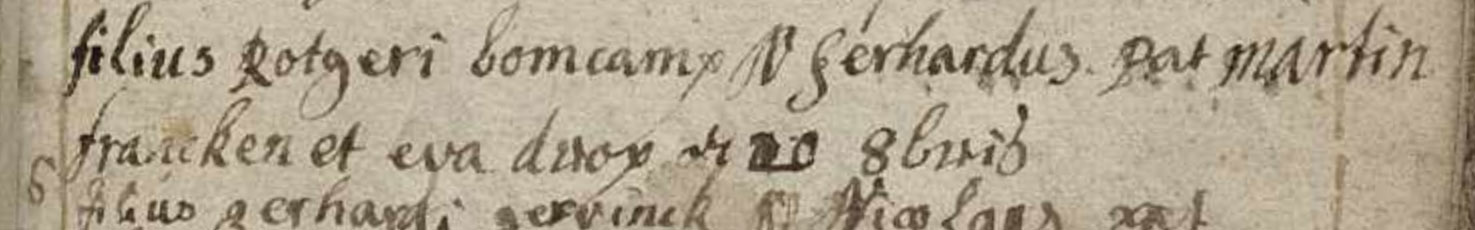 filius Rotgeri bomcamp N gerhardus. pat martin
francken et eva 20 8bris
filius gerhardi gervinck N Nicolaus pat